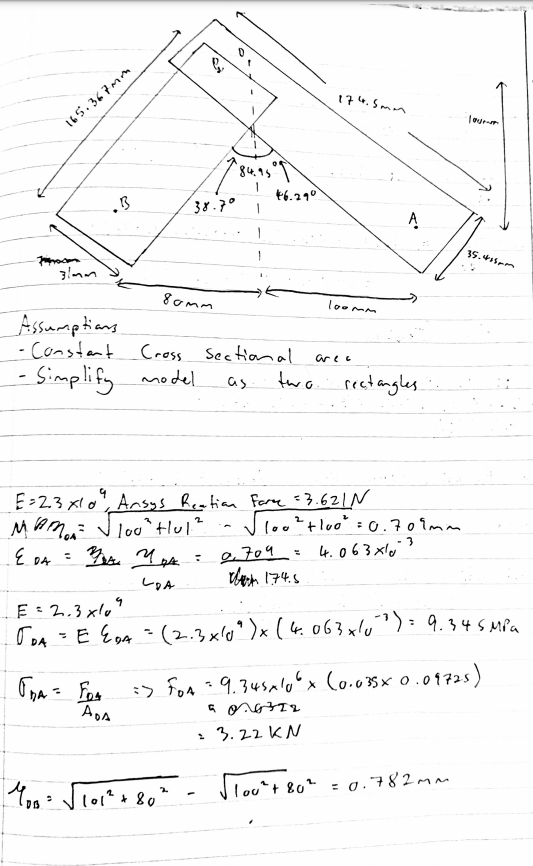 D
B
165.367mm
174.5mm
100mm
84.95°
38.7°
46.29°
B
A
31mm
35.405mm
80mm
100mm
Assumptions
- Constant Cross sectional area
- Simplify model as two rectangles
E=2.3×10⁹, Ansys Reaction Force = 3.621N
η_DA = √100²+101² - √100²+100² = 0.709mm
ε_DA = η_DA / L_DA = 0.709 / 174.5 = 4.063×10⁻³
E = 2.3×10⁹
σ_DA = E ε_DA = (2.3×10⁹)×(4.063×10⁻³) = 9.345MPa
σ_DA = F_DA / A_DA => F_DA = 9.345×10⁶ × (0.035× 0.09725)
= 3.22KN
η_DB = √101²+80² - √100²+80² = 0.782mm